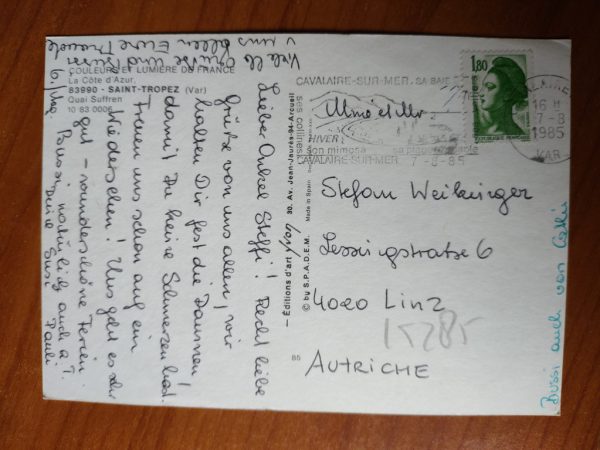 COULEURS ET LUMIÈRE DE FRANCE
La Côte d'Azur.
83990 - SAINT-TROPEZ (Var)
Quai Suffren
10 83 0006
6.
Lieber Onkel Steffi! Recht liebe
Grüße von uns allen, wir
halten Dir fest die Daumen!
damit Du keine Schmerzen hast.
Freuen uns schon auf ein
Wiedersehen! Uns geht es sehr
gut - wunderschöne Ferien.
Bussi natürlich auch a. T.
Deine Susi Pauli
Viele Grüße und Bussi
v. uns allen Eure
Editions d'art
30, Av. Jean-Jaurès-94-Arcueil
© by S.P.A.D.E.M.
Made in Spain
86
CAVALAIRE-SUR-MER, SA BAIE
ses collines
HIVER
son mimosa
CAVALAIRE-SUR-MER 7-8-85
1,80
REPUBLIQUE FRANÇAISE
16 H
7-8
1985
VAR
Stefan
Lessingstrasse 6
4020 Linz
15285
AUTRICHE
Bussi auch von